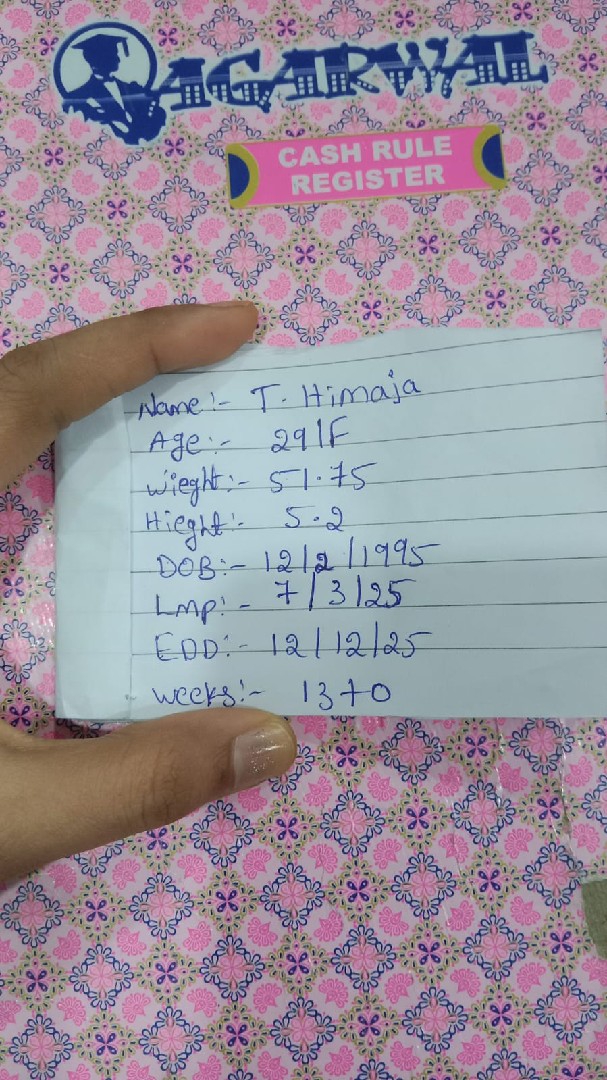 AGARWAL
CASH RULE
REGISTER
Name:- T. Himaja
Age:- 29/F
Wieght:- 51.75
Hieght:- 5.2
DOB:- 12/2/1995
Lmp:- 7/3/25
EDD:- 12/12/25
weeks:- 13+0